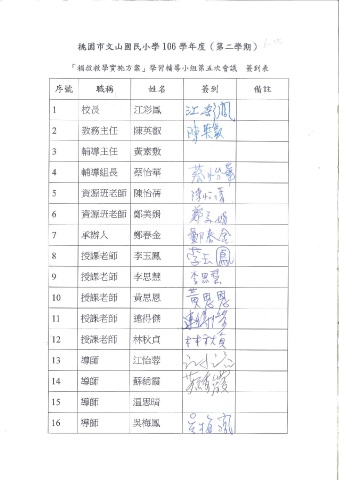 桃園市文山國民小學 106 學年度（第二學期）
「補救教學實施方案」學習輔導小組第五次會議　簽到表
序號 職稱 姓名 簽到 備註
1 校長 江彩鳳 江彩鳳
2 教務主任 陳英叡 陳英叡
3 輔導主任 黃素勳
4 輔導組長 蔡怡華 蔡怡華
5 資源班老師 陳怡蒨 陳怡蒨
6 資源班老師 鄭美娟 鄭美娟
7 承辦人 鄭春金 鄭春金
8 授課老師 李玉鳳 李玉鳳
9 授課老師 李思慧 李思慧
10 授課老師 黃思恩 黃思恩
11 授課老師 連得傑
12 授課老師 林秋貞 林秋貞
13 導師 江怡蓉
14 導師 蘇綺霞 蘇綺霞
15 導師 溫思晴
16 導師 吳梅鳳 吳梅鳳